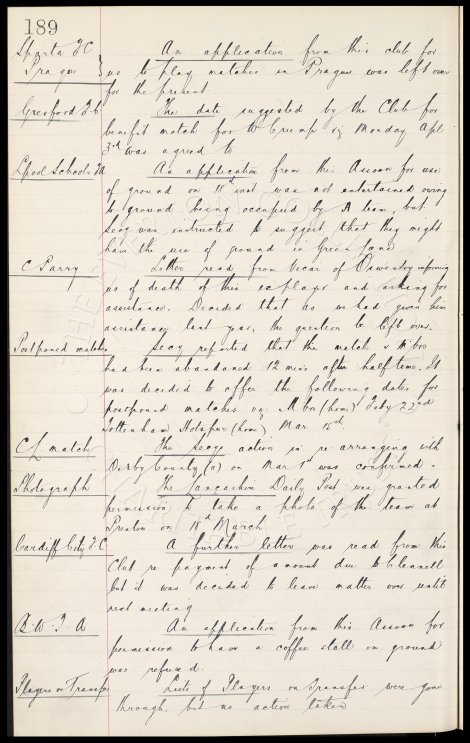 189
Sparta F C
Prague
An application from this club for
us to play matches in Prague was left over
for the present
Gresford F C
The date suggested by the Club for
benefit match for W Crump viz Monday Apl
3rd was agreed to
Lpool Schools FA
An application from this Assocn for use
of ground on 18th inst was not entertained owing
to ground being occupied by A team, but
Secy was instructed to suggest that they might
have the use of ground in Green Lane
C Parry
Letter read from Vicar of Oswestry informing
us of death of this explayer and asking for
assistance. Decided that as we had given him
assistance last year, the question be left over.
Postponed matches
Secy reported that the match v M'bro
had been abandoned 12 mins after half time. It
was decided to offer the following dates for
postponed matches viz M'bro (home) Feby 22nd
Tottenham Hotspur (home) Mar 15th
CL match
The Secys action in re-arranging with
Derby County (a) on Mar 1st was confirmed.
Photograph
The Lancashire Daily Post were granted
permission to take a photo of the team at
Preston on 18th March
Cardiff City F C
A further letter was read from this
Club re payment of amount due to Clennell
but it was decided to leave matter over until
next meeting
B. W. T. A
An application from this Assocn for
permission to have a coffee stall on ground
was refused.
Players on Transfer
Lists of Players on transfer were gone
through, but no action taken